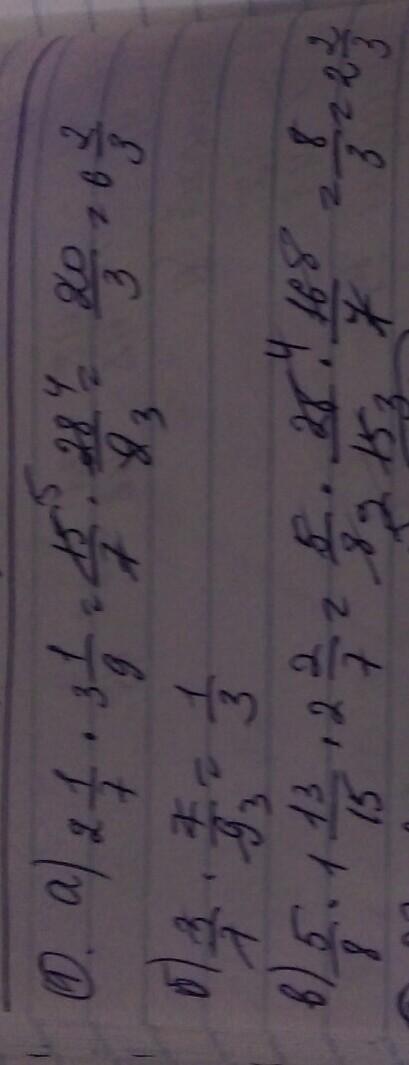 ① а) 2 1/7 · 3 1/9 = 15⁵/7 · 28⁴/9₃ = 20/3 = 6 2/3
б) 3/7 · 7/9₃ = 1/3
в) 5/8 · 1 13/15 · 2 2/7 = 5/8₂ · 28⁴/15₃ · 16⁸/7 = 8/3 = 2 2/3